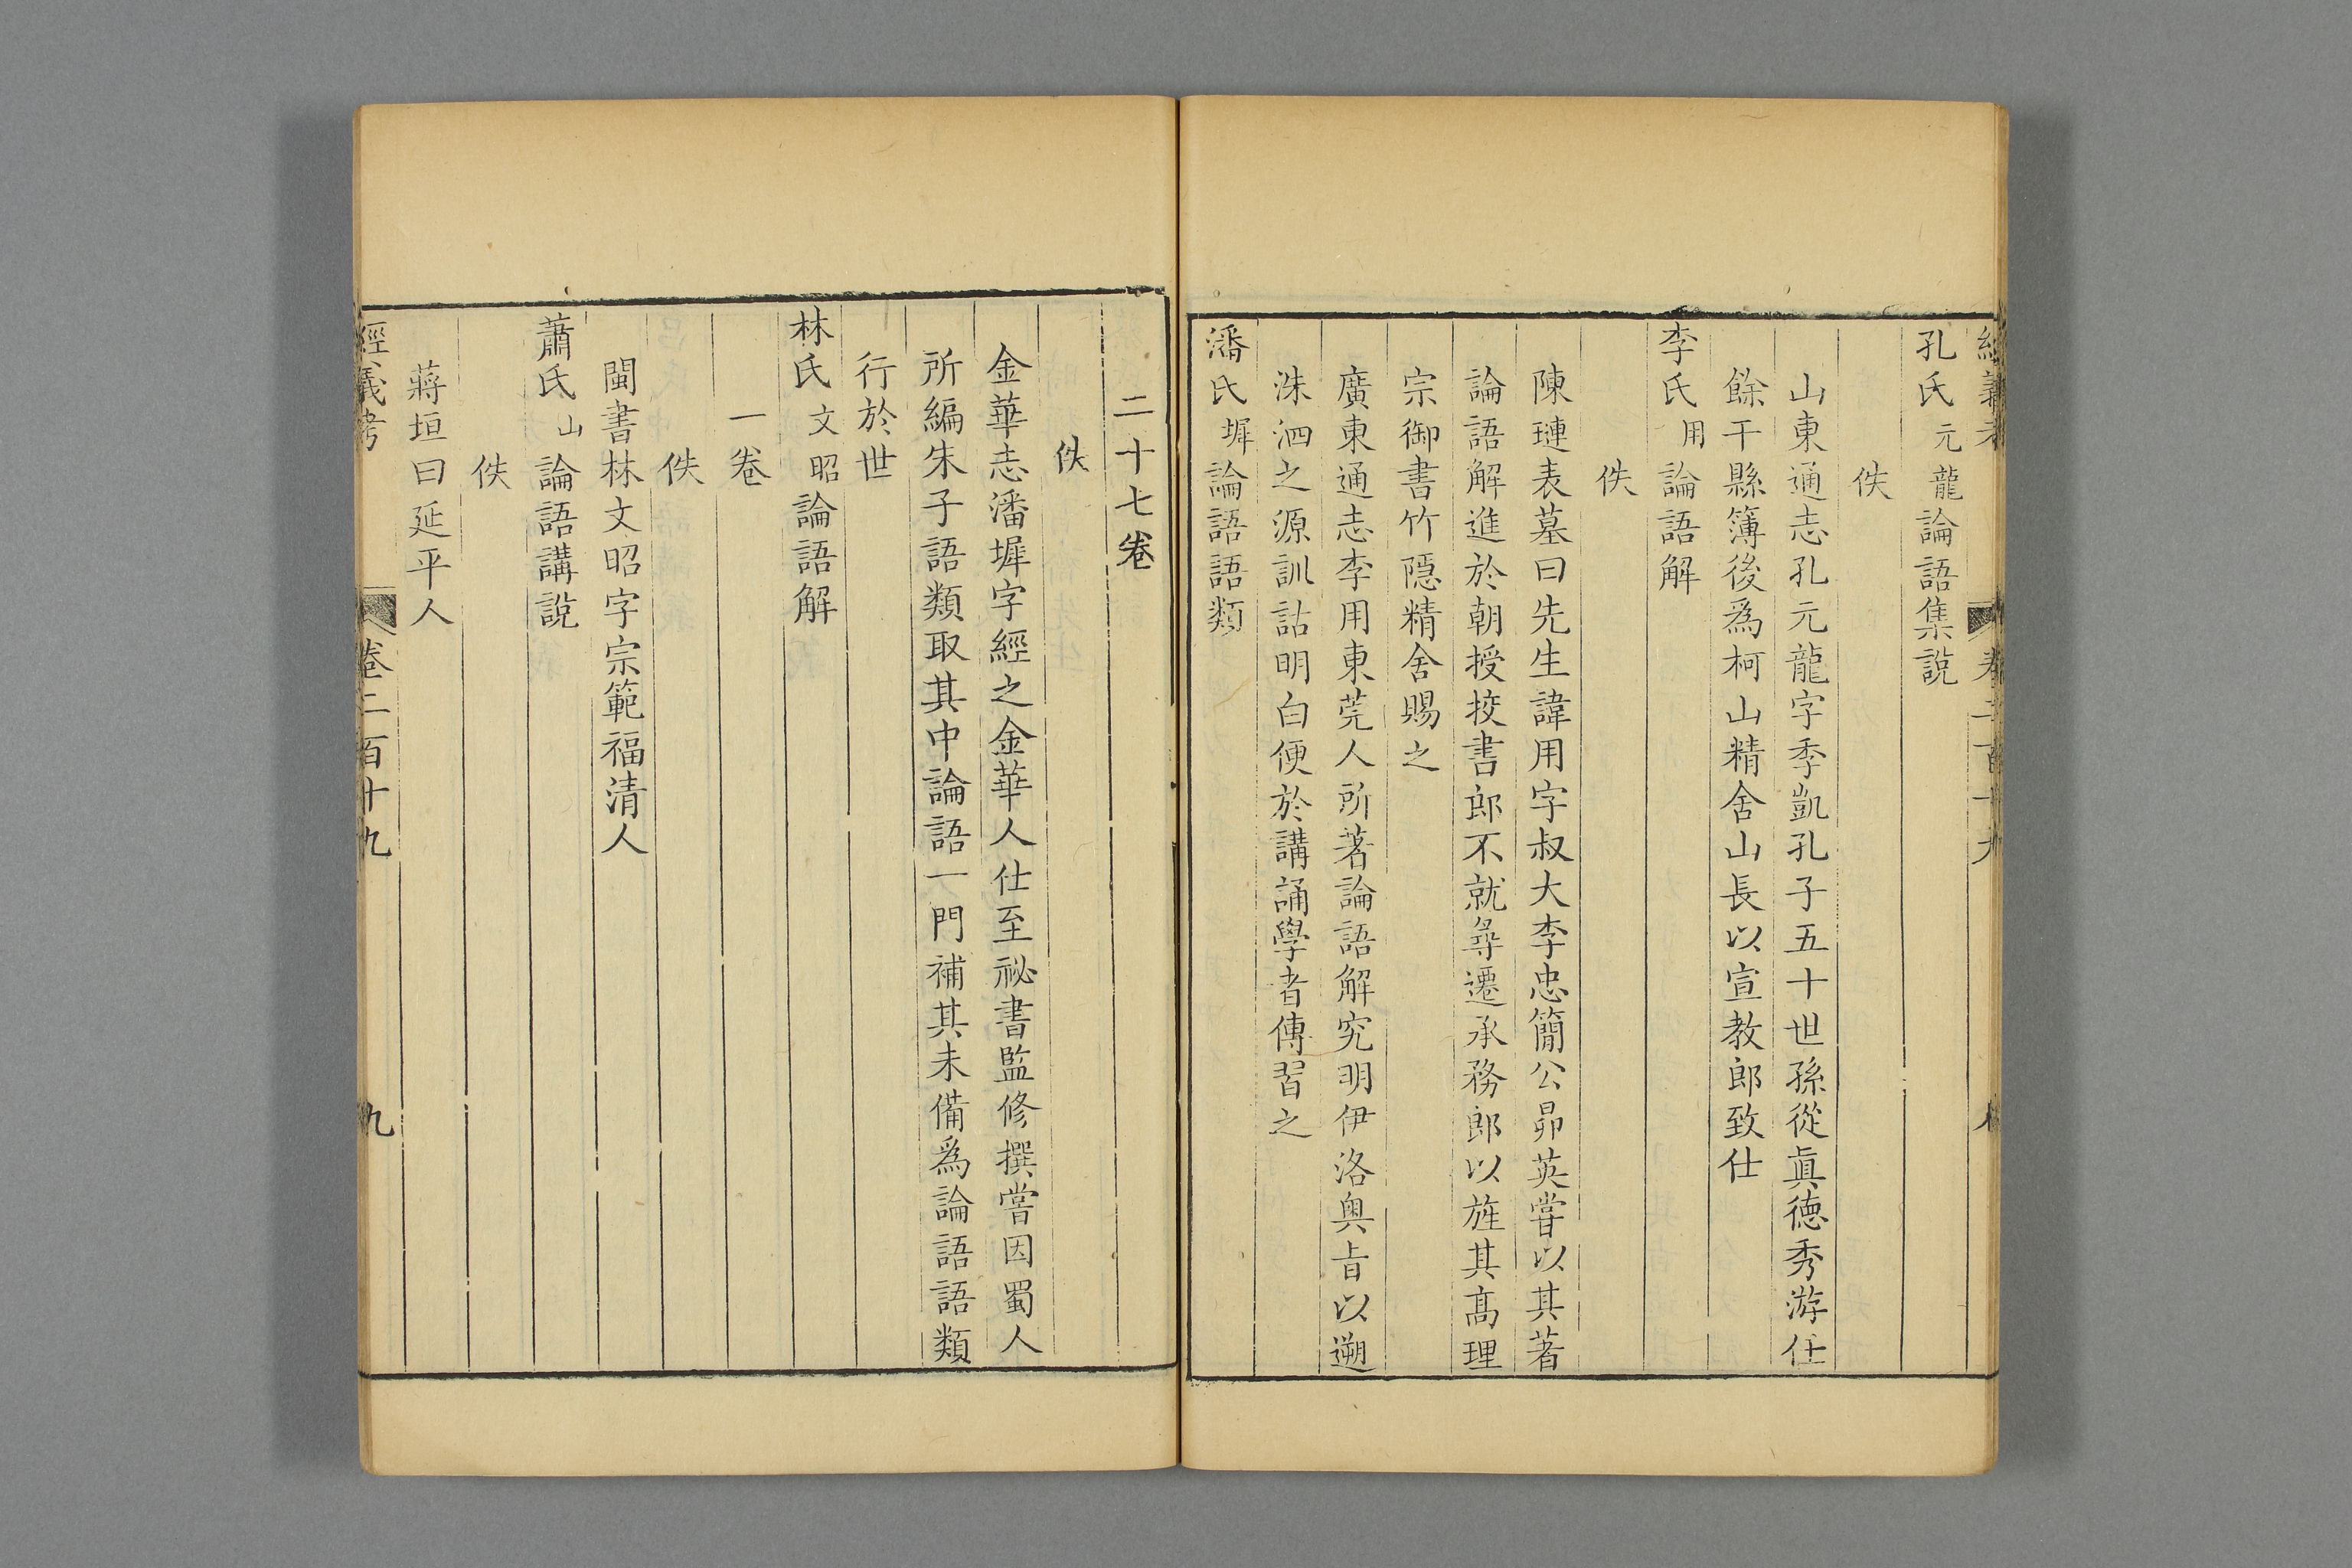 孔氏元龍論語集說
佚
山東通志孔元龍字季凱孔子五十世孫從眞德秀游仕
餘干縣簿後爲柯山精舍山長以宣教郎致仕
李氏用論語解
佚
陳璉表墓曰先生諱用字叔大李忠簡公昴英嘗以其著
論語解進於朝授挍書郎不就尋遷承務郎以旌其高理
宗御書竹隱精舍賜之
廣東通志李用東莞人所著論語解究明伊洛奥旨以遡
洙泗之源訓詁明白便於講誦學者傳習之
潘氏墀論語語類
二十七卷
佚
金華志潘墀字經之金華人仕至祕書監修撰嘗因蜀人
所編朱子語類取其中論語一門補其未備爲論語語類
行於世
林氏文昭論語解
一卷
佚
閩書林文昭字宗範福清人
蕭氏山論語講說
佚
蔣垣曰延平人
經義考 卷二百十九 九